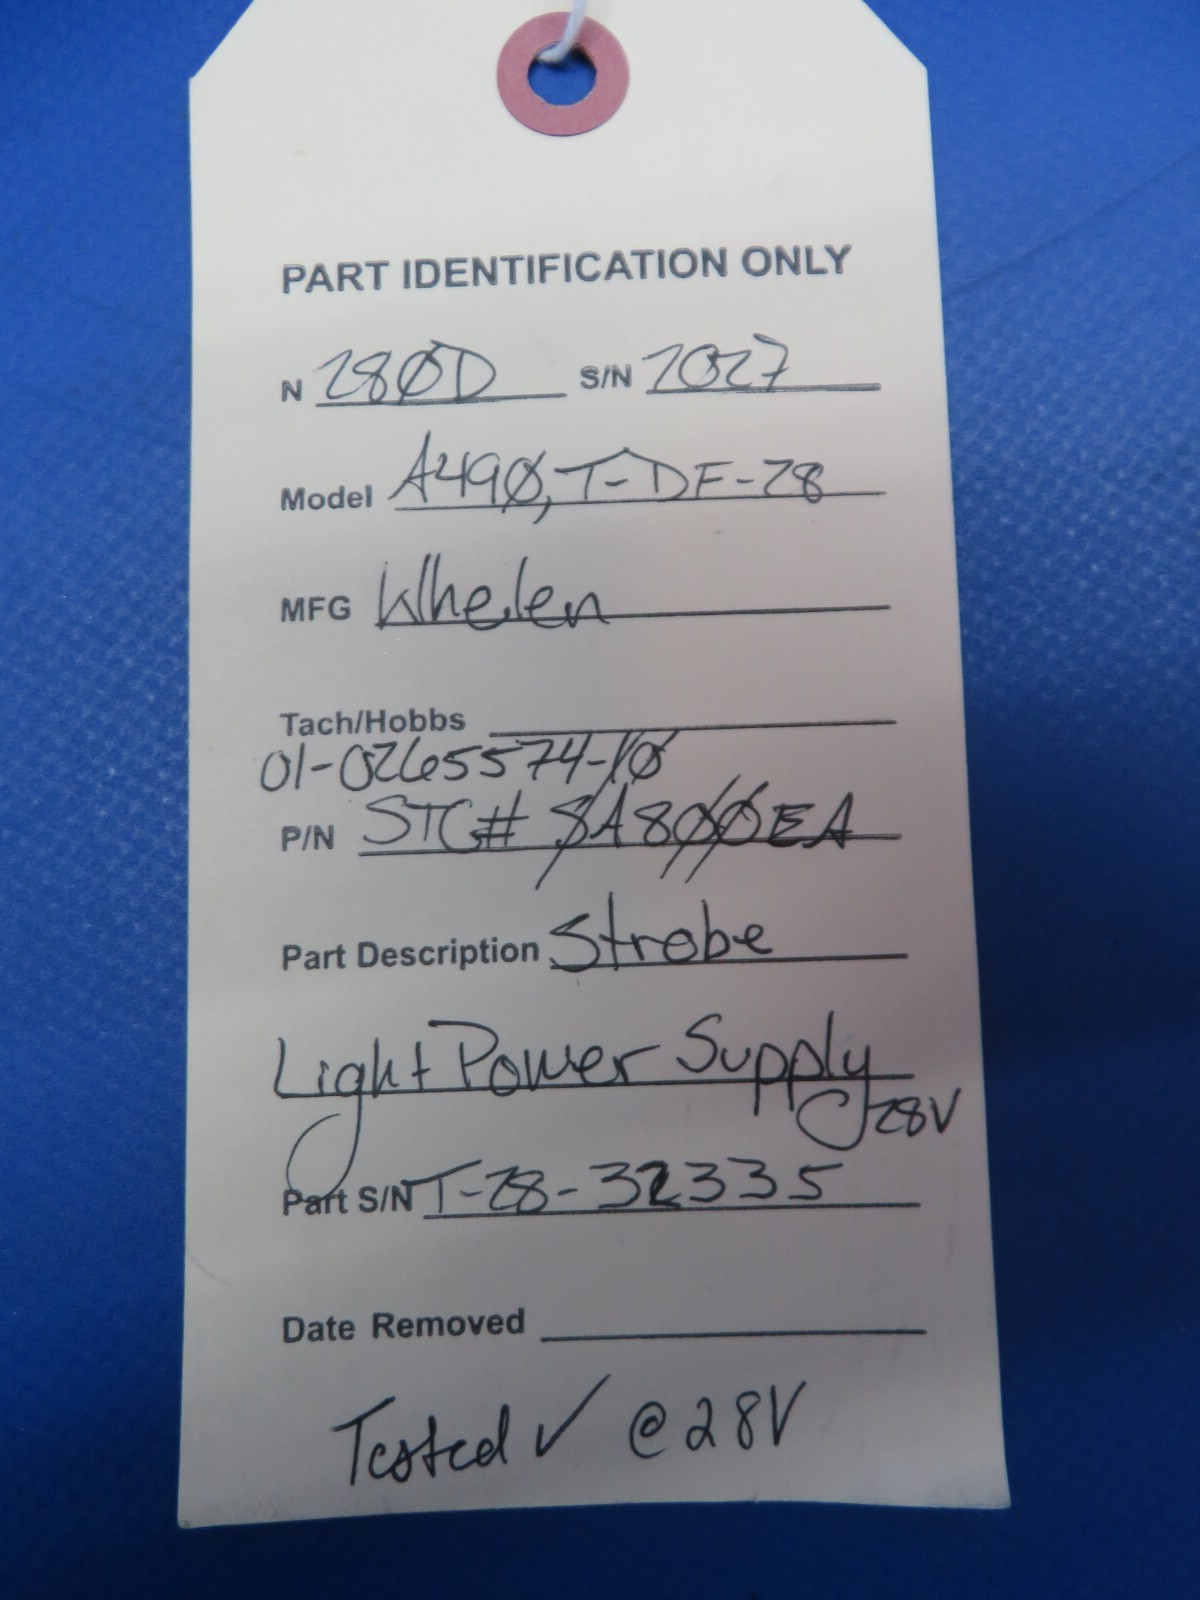 PART IDENTIFICATION ONLY
N 280D S/N 2027
Model A490, T-DF-28
MFG Whelen
Tach/Hobbs
01-0265574-10
P/N STC# SA800EA
Part Description Strobe
Light Power Supply
28V
Part S/N T-28-32335
Date Removed
Tested ✓ @ 28V